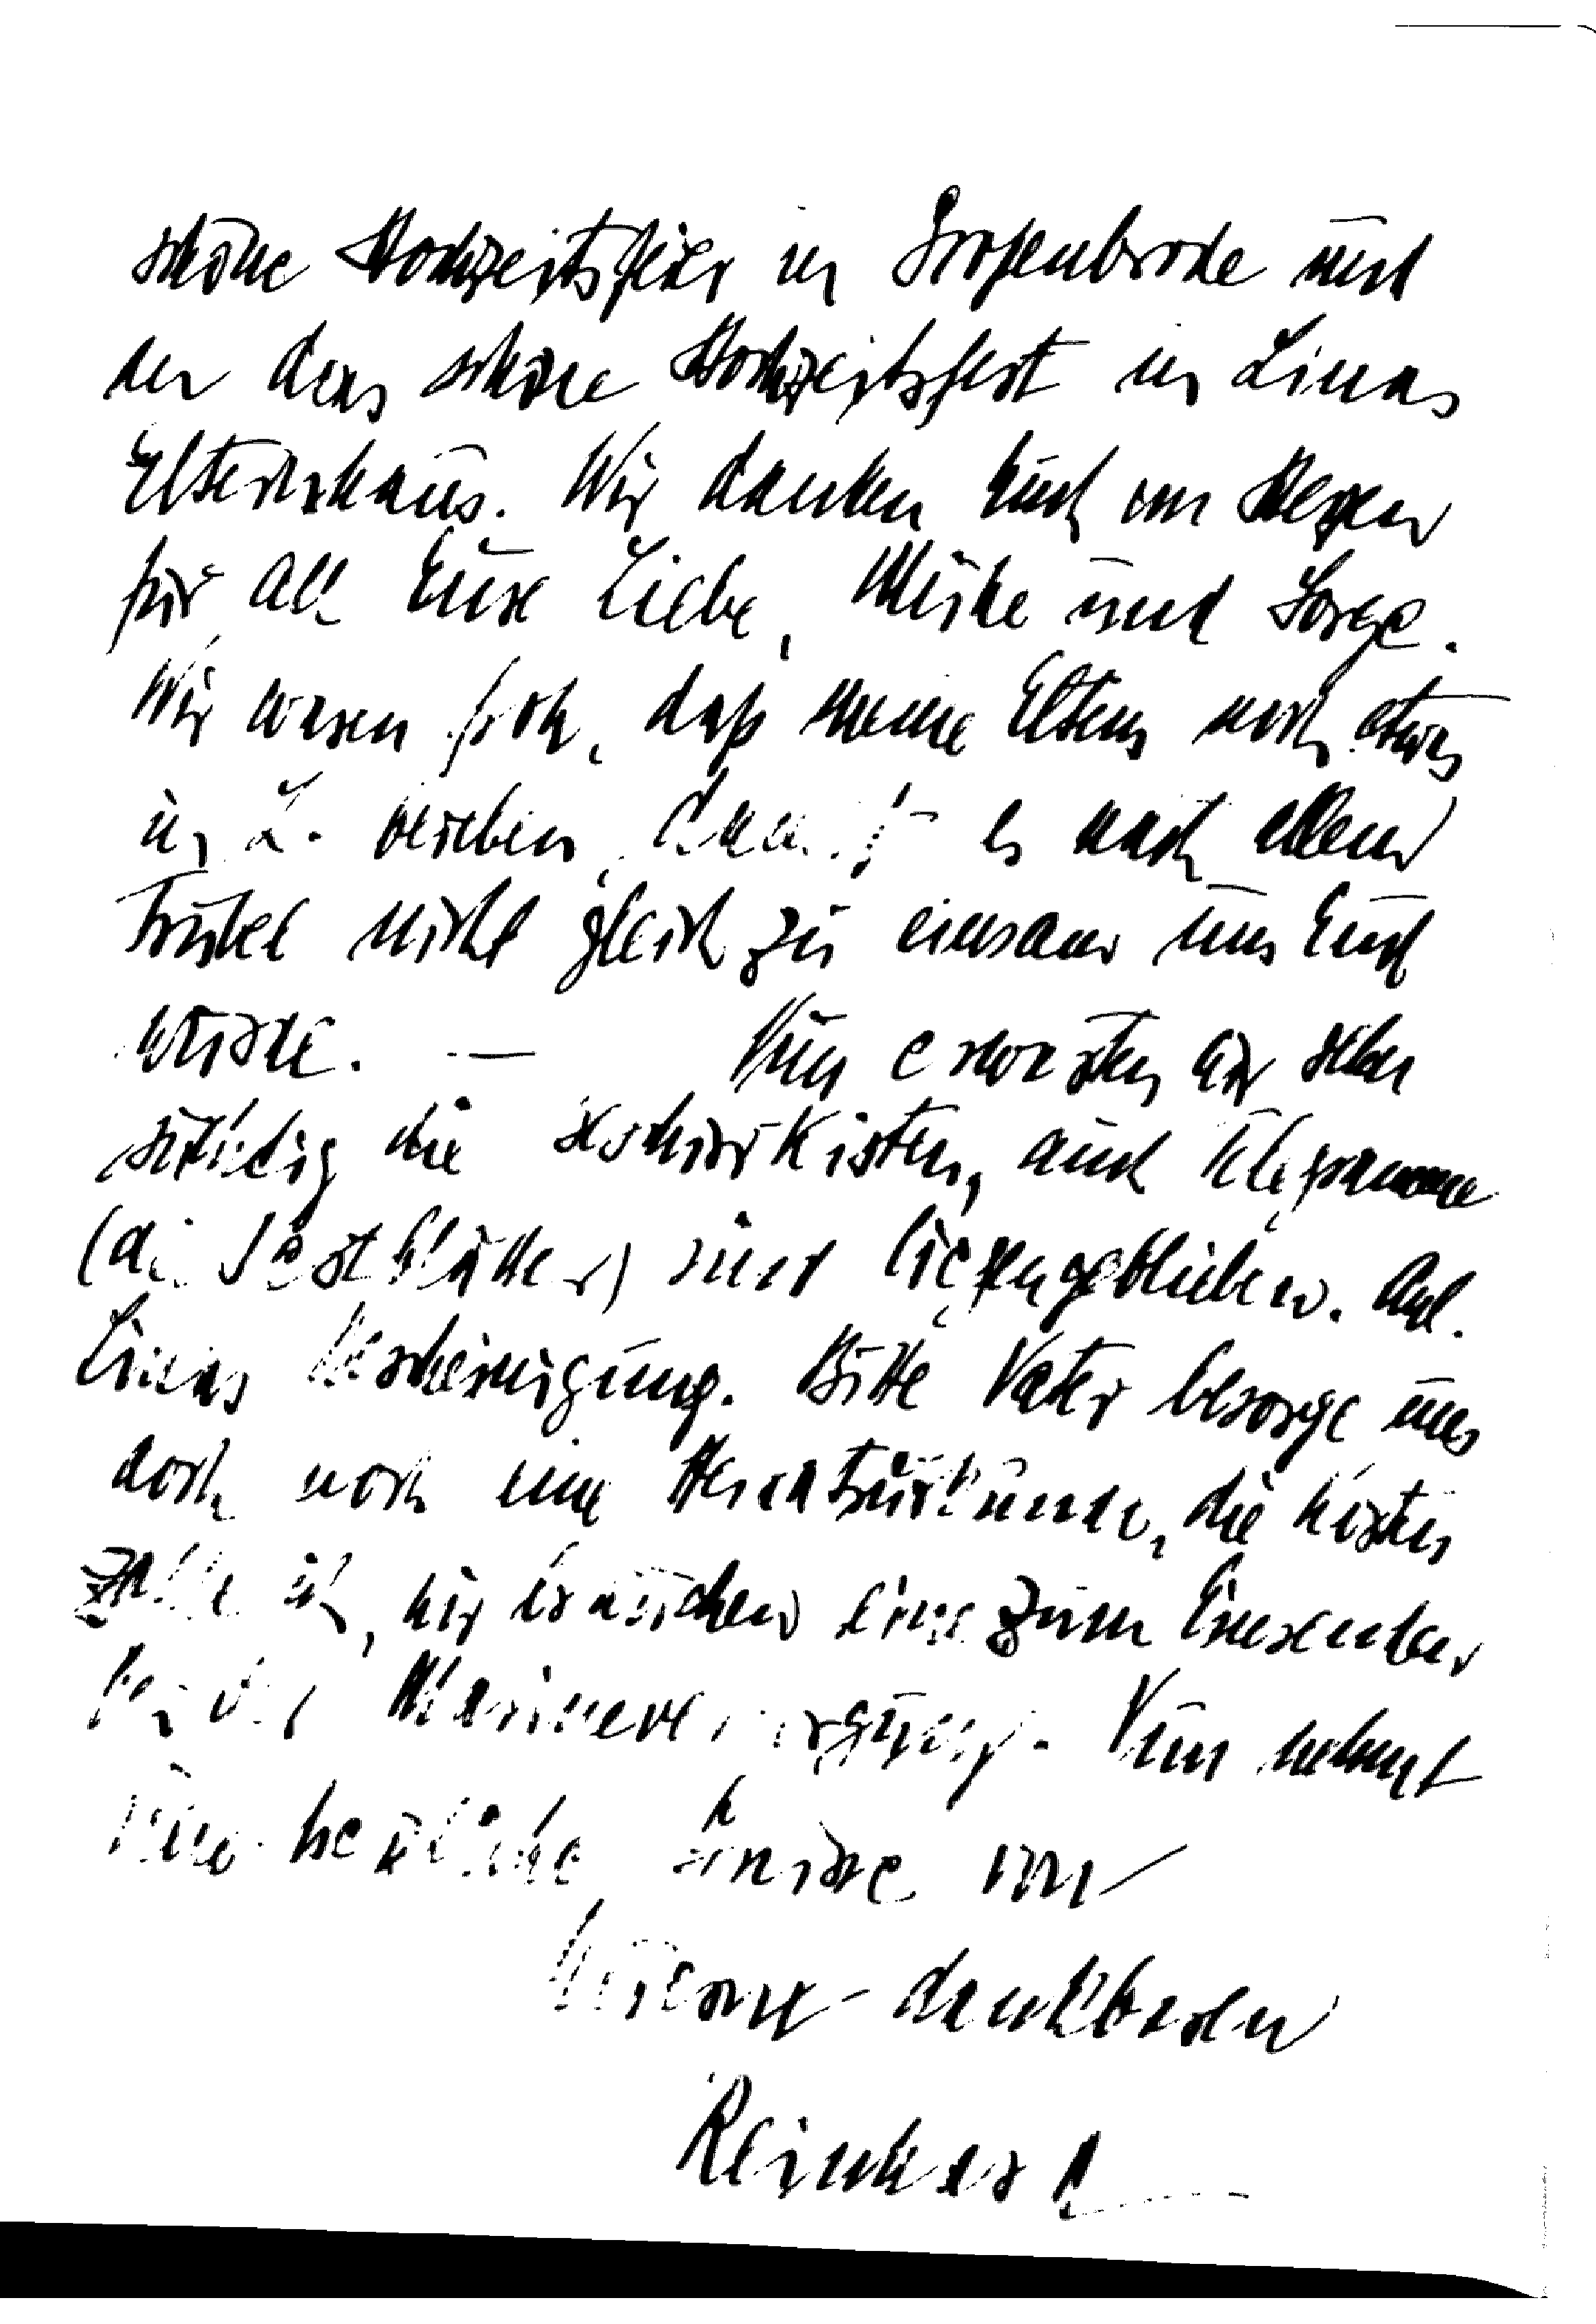 schöne Hochzeitsfeier in Großenbrode und
der das schöne Hochzeitsfest in Linas
Elternhaus. Wir danken Euch von Herzen
für all Eure Liebe, Mühe und Sorge.
Wir waren froh, daß meine Eltern noch etwas
in L. blieben, damit es nach allem
Trubel nicht gleich zu einsam um Euch
würde. — Nun erwarten wir sehn
süchtig die Geschirrkisten, auch Telegramme
(die Textblätter) sind liegengeblieben. Anl.
Linas Bescheinigung. Bitte Vater besorge uns
doch noch eine Heiratsurkunde, die Kosten
zahle ich, wir brauchen eine zum Einsenden
bei der Marineversorgung. Nun nehmt
herzliche Grüße von
Eurem dankbaren
Reinhard